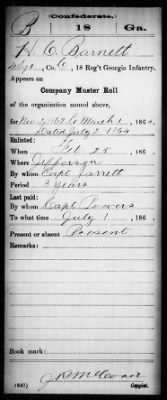 Confederate.
B 18 Ga.
H. C. Barnett
Co. C, 18 Reg't Georgia Infantry.
Appears on
Company Muster Roll
of the organization named above,
for Nov 1, 1863 to March 1, 186
Dated July 2 1864
Enlisted:
When Feb 25, 186
Where Jefferson
By whom Capt Jarrett
Period 3 years
Last paid:
By whom Capt Powers
To what time July 1, 186
Present or absent Present
Remarks:
Book mark:
Copyist.